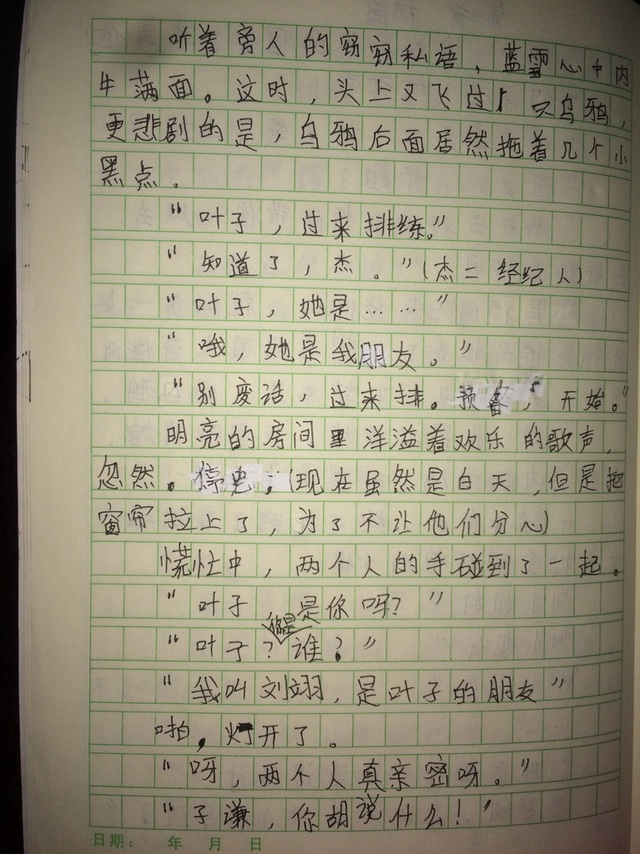 听着旁人的窃窃私语，蓝雪心中内
牛满面。这时，头上又飞过1只乌鸦，
更悲剧的是，乌鸦后面居然拖着几个小
黑点。
“叶子，过来排练。”
“知道了，杰。”(杰=经纪人)
“叶子，她是……”
“哦，她是我朋友。”
“别废话，过来排。预备，开始。”
明亮的房间里洋溢着欢乐的歌声，
忽然。停电。(现在虽然是白天，但是把
窗帘拉上了，为了不让他们分心)
慌忙中，两个人的手碰到了一起。
“叶子 是你吗？”
“叶子？你是谁？”
“我叫刘翊，是叶子的朋友”
啪，灯开了。
“呀，两个人真亲密呀。”
“子谦，你胡说什么！”
日期： 年 月 日